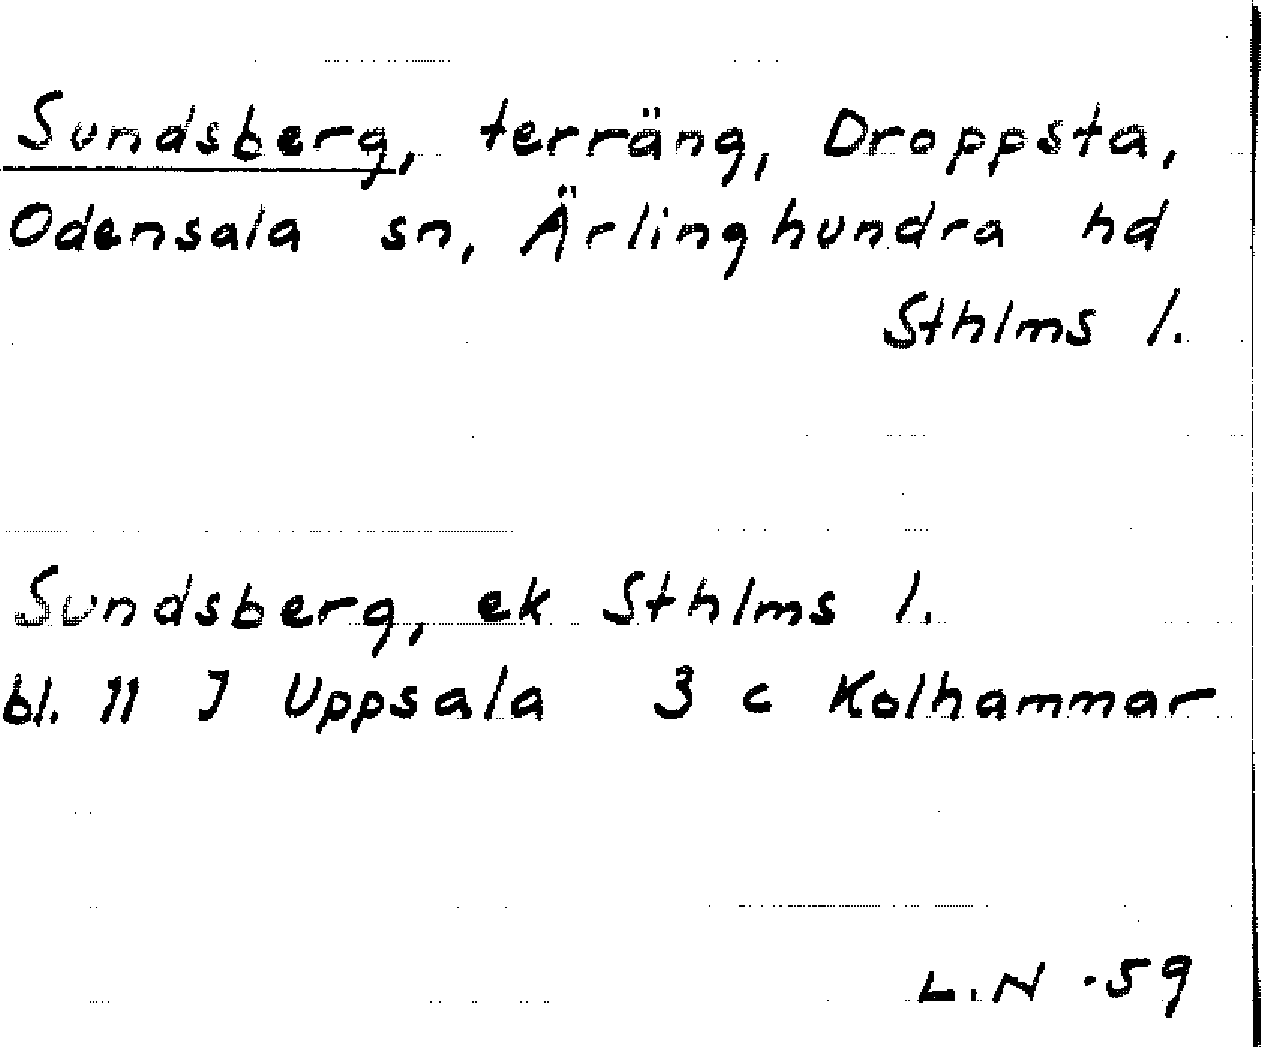 Sundsberg, terräng, Droppsta,
Odensala sn, Ärlinghundra hd
Sthlms l.
Sundsberg, ek Sthlms l.
bl. 11 J Uppsala 3 c Kolhammar
L.N -59